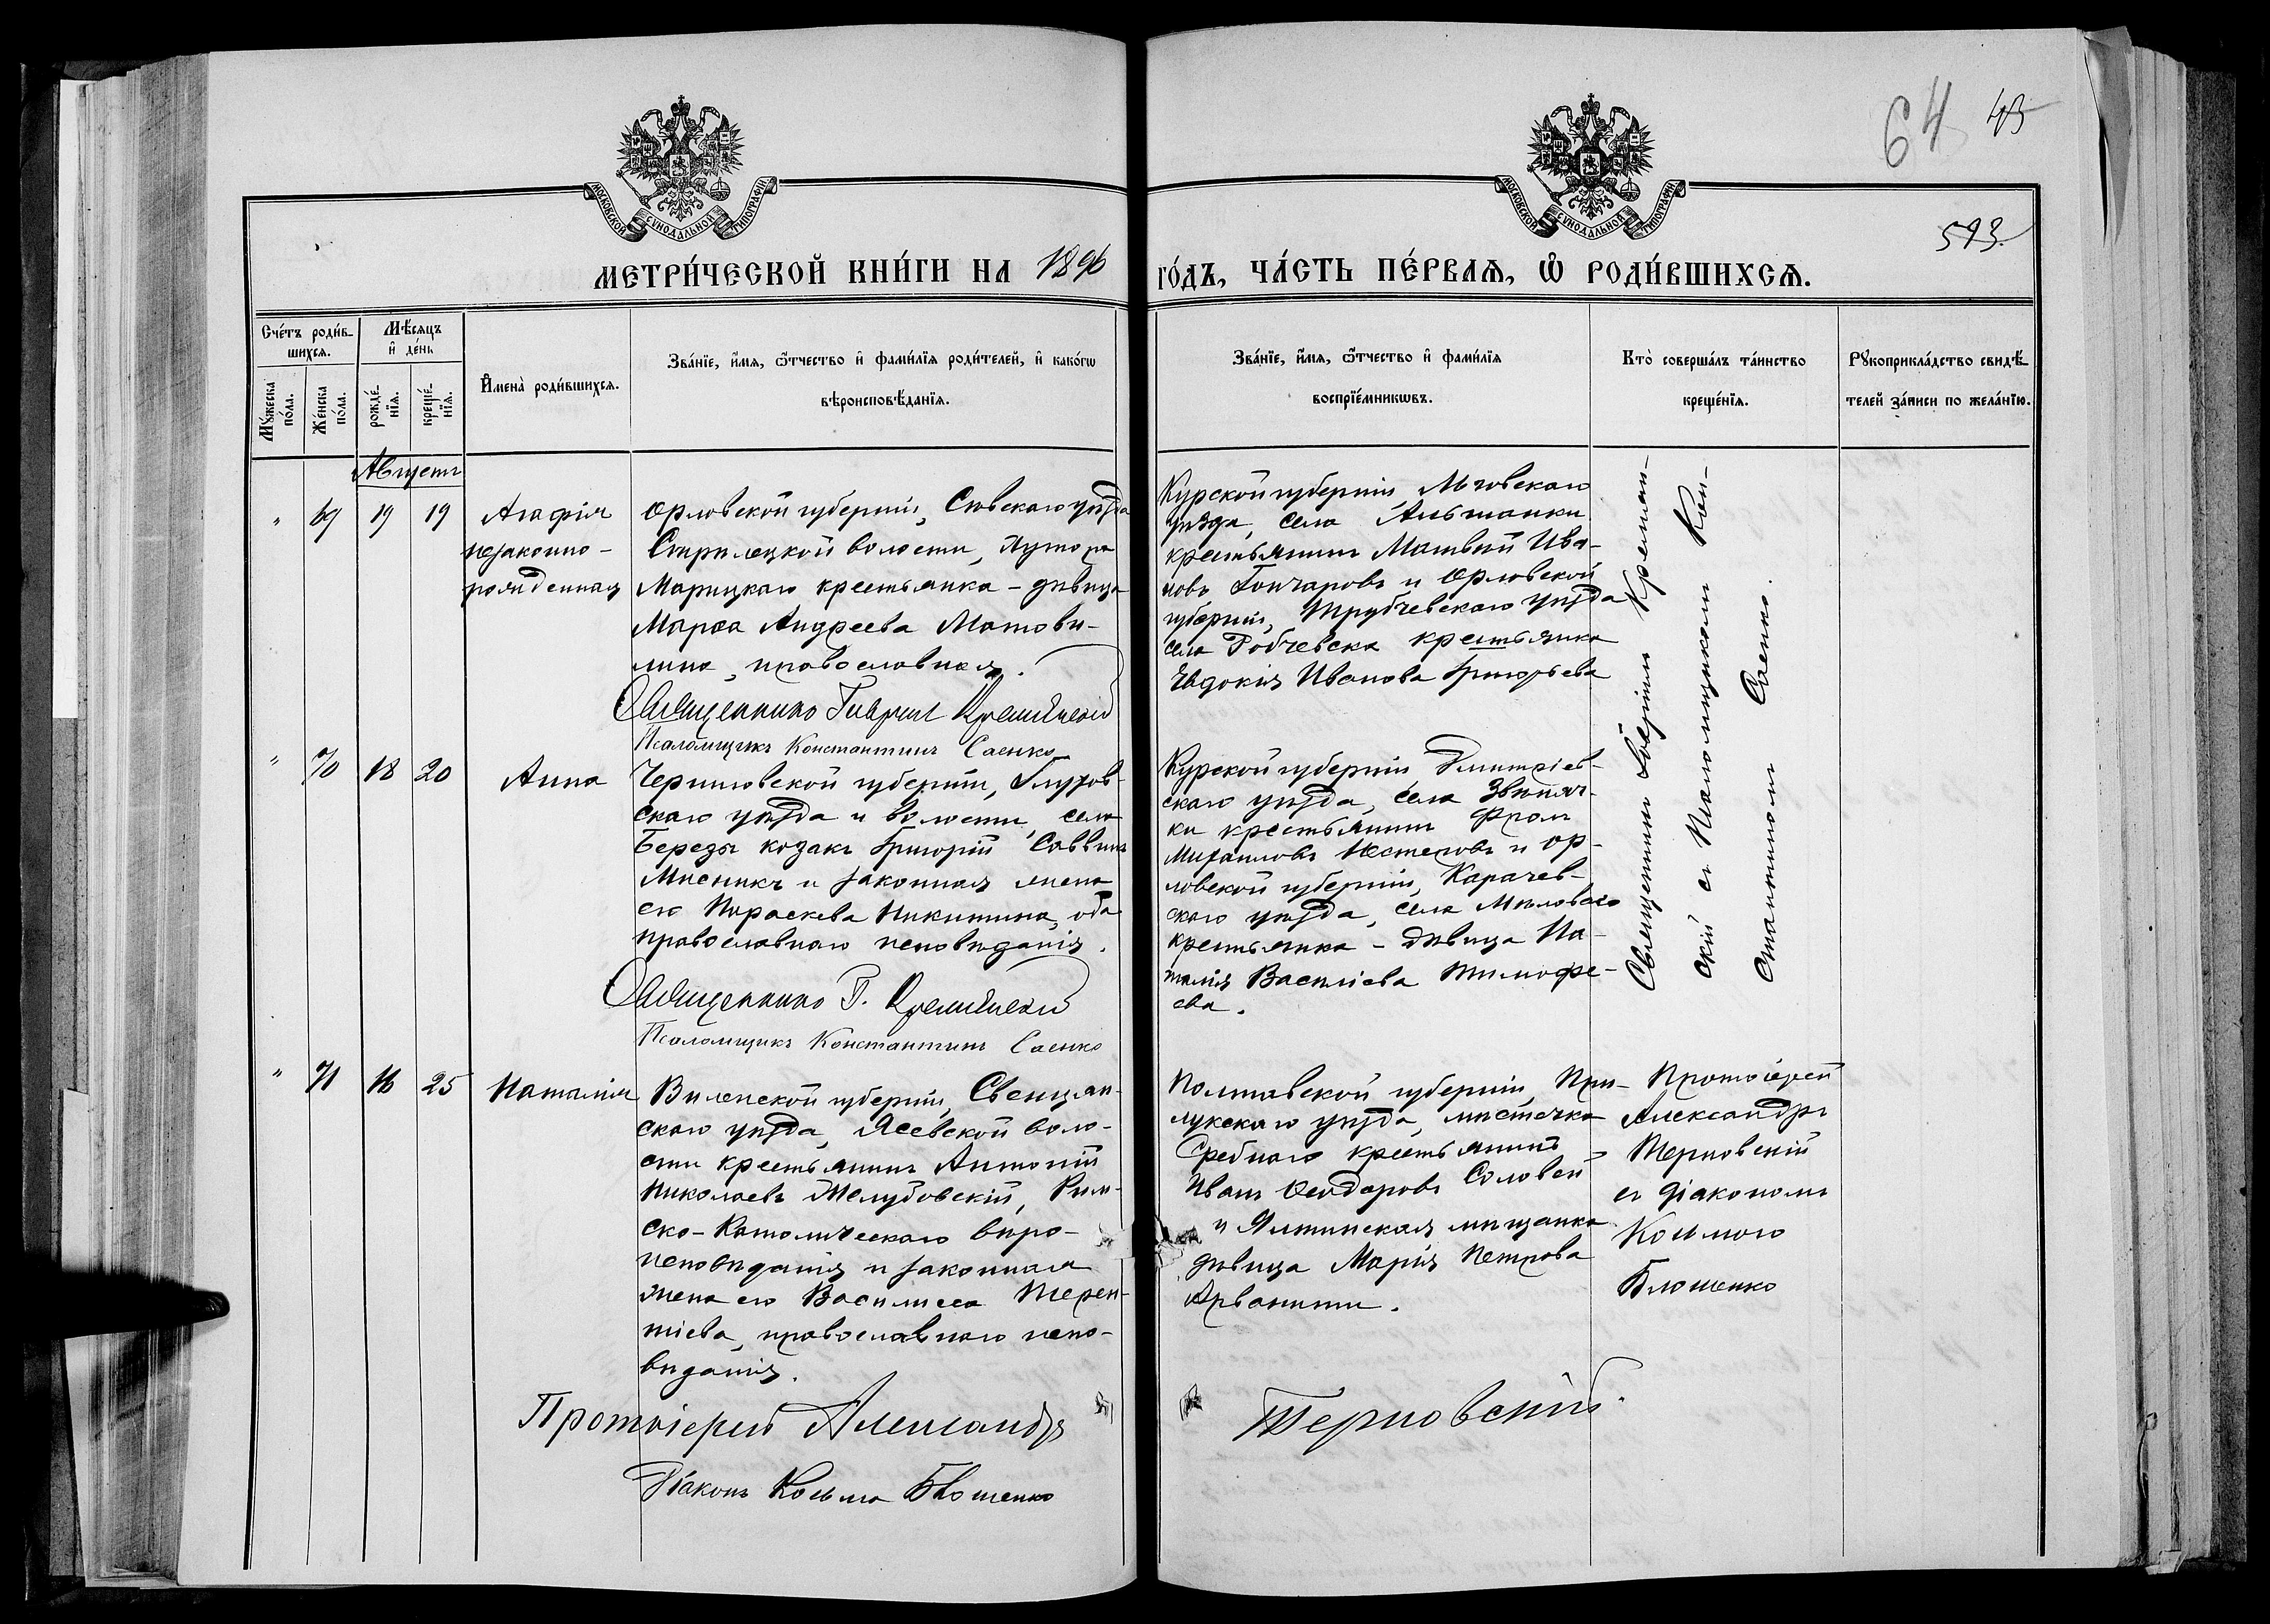 64 43
593.
МОСКОВСКОЙ СУНОДАЛЬНОЙ ТИПОГРАФІИ
МОСКОВСКОЙ СУНОДАЛЬНОЙ ТИПОГРАФІИ
МЕТРИ́ЧЕСКОЙ КНИ́ГИ НА 1896 ГО́ДЪ, ЧА́СТЬ ПЕ́РВАѦ, Ѡ҆ РОДИ́ВШИХСѦ.
Сче́тъ роди́в-
шихсѧ.
Мꙋ́жеска
по́ла.
Же́нска
по́ла.
Мѣ́сѧцъ
и҆ де́нь
рожде́-
нїѧ.
креще́-
нїѧ.
И҆мена̀ роди́вшихсѧ.
Зва́нїе, и҆́мѧ, ѻ҆́тчество и҆ фами́лїѧ роди́телей, и҆ како́гѡ
вѣроисповѣ́данїѧ.
Зва́нїе, и҆́мѧ, ѻ҆́тчество и҆ фами́лїѧ
воспрїе́мникѡвъ.
Кто̀ соверша́лъ та́инство
креще́нїѧ.
Рꙋкоприкла́дство свидѣ́-
телей за́писи по жела́нїю.
Августъ
" 69 19 19
Агафія
незаконно-
рожденная
Орловской губерніи, Сѣвскаго уѣзда
Стрѣлецкой волости, хутора
Марицкаго крестьянка - дѣвица
Марѳа Андреева Матови-
лина, православная.
Священникъ Гавріилъ Кремянскій
Псаломщикъ Константинъ Саенко
Курской губерніи, Льговскаго
уѣзда, села Альшанки
крестьянинъ Матвѣй Ива-
новъ Гончаровъ и Орловской
губерніи, Трубчевскаго уѣзда
села Робчевска крестьянка
Евдокія Иванова Григорьева
Священникъ Гавріилъ Кремян-
скій съ Псаломщикомъ Кон-
стантиномъ Саенко.
" 70 18 20
Анна
Черниговской губерніи, Глухов-
скаго уѣзда и волости, села
Березы козакъ Григорій Саввинъ
Мисникъ и законная жена
его Параскева Никитина, оба
православнаго исповѣданія.
Священникъ Г. Кремянскій
Псаломщикъ Константинъ Саенко
Курской губерніи, Дмитріев-
скаго уѣзда, села Звѣняч-
ки крестьянинъ Фролъ
Михаиловъ Нестеровъ и Ор-
ловской губерніи, Карачев-
скаго уѣзда, села Милового
крестьянка - дѣвица На-
талія Василіева Тимофе-
ева.
" 71 16 25
Наталія
Виленской губерніи, Свенцян-
скаго уѣзда, Ясевской воло-
сти крестьянинъ Антоній
Николаевъ Желубовскій, Рим-
ско-Католическаго вѣро-
исповѣданія и законная
жена его Василисса Терен-
тіева, православнаго испо-
вѣданія.
Полтавской губерніи, При-
лукскаго уѣзда, мѣстечка
Сребнаго крестьянинъ
Иванъ Ѳеодоровъ Соловей
и Ялтинская мѣщанка
дѣвица Марія Петрова
Арванити.
Протоіерей
Александръ
Терновскій
съ діакономъ
Космою
Блошенко
Протоіерей Александръ Терновскій.
Діаконъ Косьма Блошенко